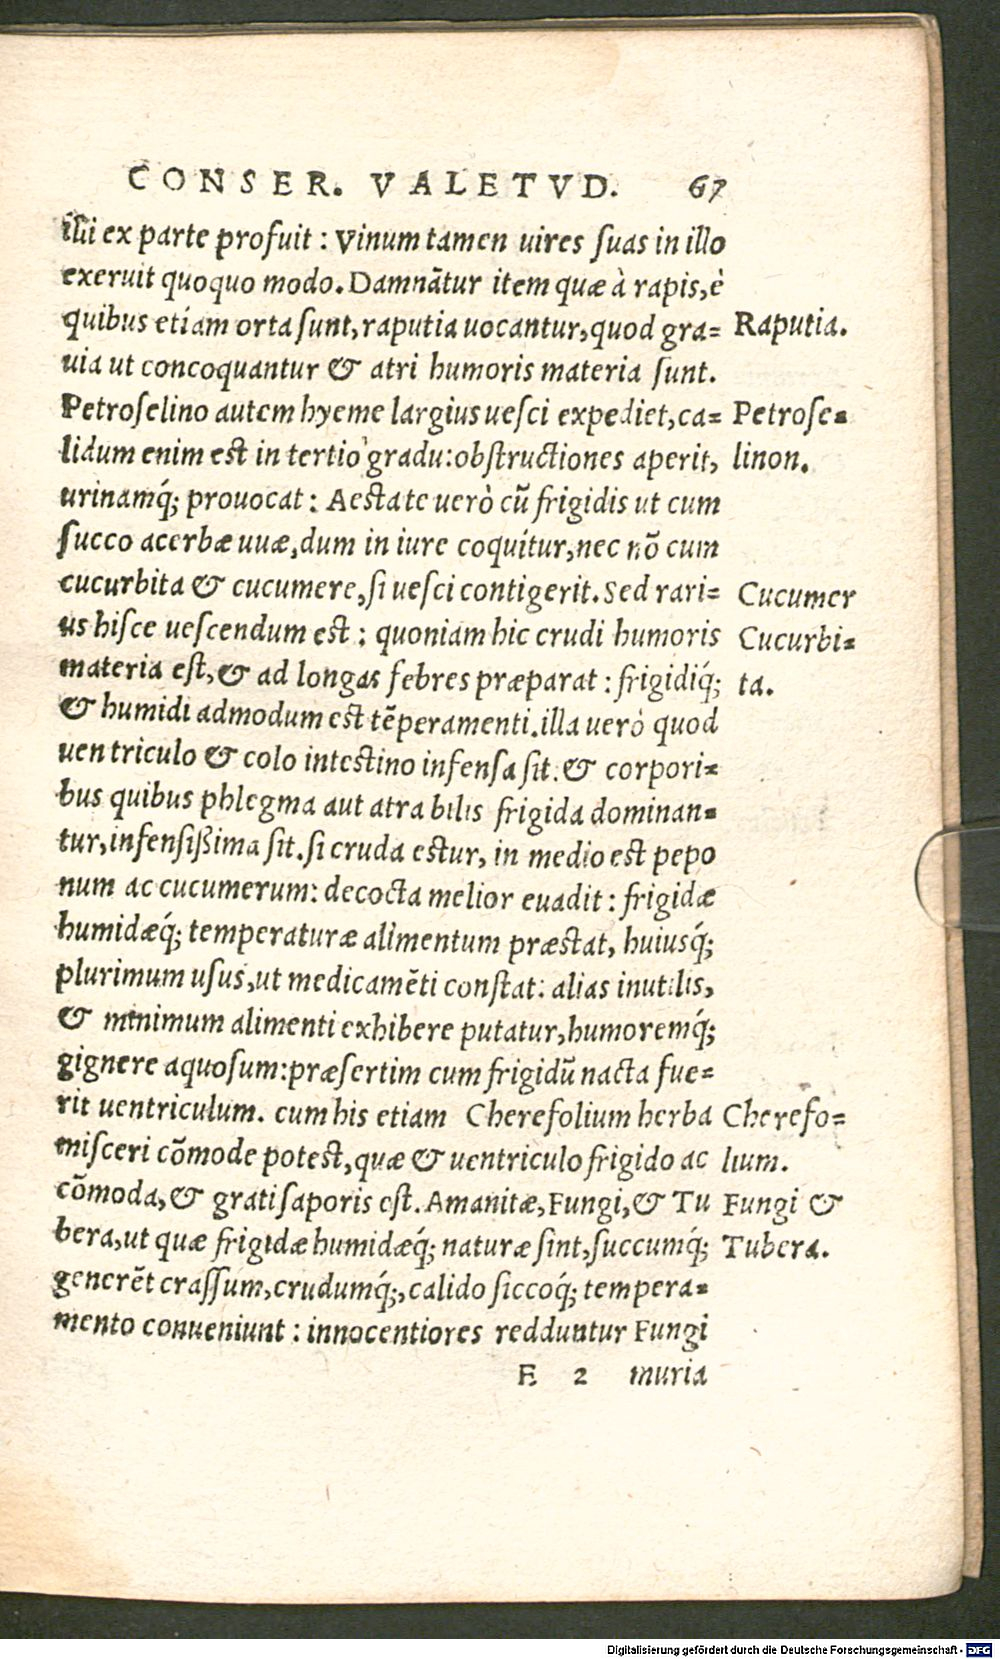 CONSER. VALETVD. 67
illi ex parte profuit : Vinum tamen uires ſuas in illo
exeruit quoquo modo. Damnātur item quæ à rapis, è
quibus etiam orta ſunt, raputia uocantur, quod gra=
Raputia.
uia ut concoquantur & atri humoris materia ſunt.
Petroſelino autem hyeme largius ueſci expediet, ca=
Petroſe=
lidum enim est in tertio gradu: obſtructiones aperit,
linon.
urinamq́; prouocat : Aestate uerò cū frigidis ut cum
ſucco acerbæ uuæ, dum in iure coquitur, nec nō cum
cucurbita & cucumere, ſi ueſci contigerit. Sed rari=
Cucumer
us hiſce ueſcendum est : quoniam hic crudi humoris
Cucurbi=
materia eſt, & ad longas febres præparat : frigidiq́;
ta.
& humidi admodum est tēperamenti. illa uerò quod
uentriculo & colo intestino infenſa ſit. & corpori=
bus quibus phlegma aut atra bilis frigida dominan=
tur, infenſißima ſit. ſi cruda estur, in medio est pepo
num ac cucumerum: decocta melior euadit : frigidæ
humidæq́; temperaturæ alimentum præstat, huiusq́;
plurimum usus, ut medicamēti conſtat: alias inutilis,
& minimum alimenti exhibere putatur, humoremq́;
gignere aquoſum: præſertim cum frigidū nacta fue=
rit uentriculum. cum his etiam Cherefolium herba
Cherefo=
miſceri cōmode potest, quæ & uentriculo frigido ac
lium.
cōmoda, & grati ſaporis eſt. Amanitæ, Fungi, & Tu
Fungi &
bera, ut quæ frigidæ humidæq́; naturæ ſint, ſuccumq́;
Tubera.
generēt craſſum, crudumq́;, calido ſiccoq́; tempera=
mento conueniunt : innocentiores redduntur Fungi
E 2 muria
Digitalisierung gefördert durch die Deutsche Forschungsgemeinschaft - DFG